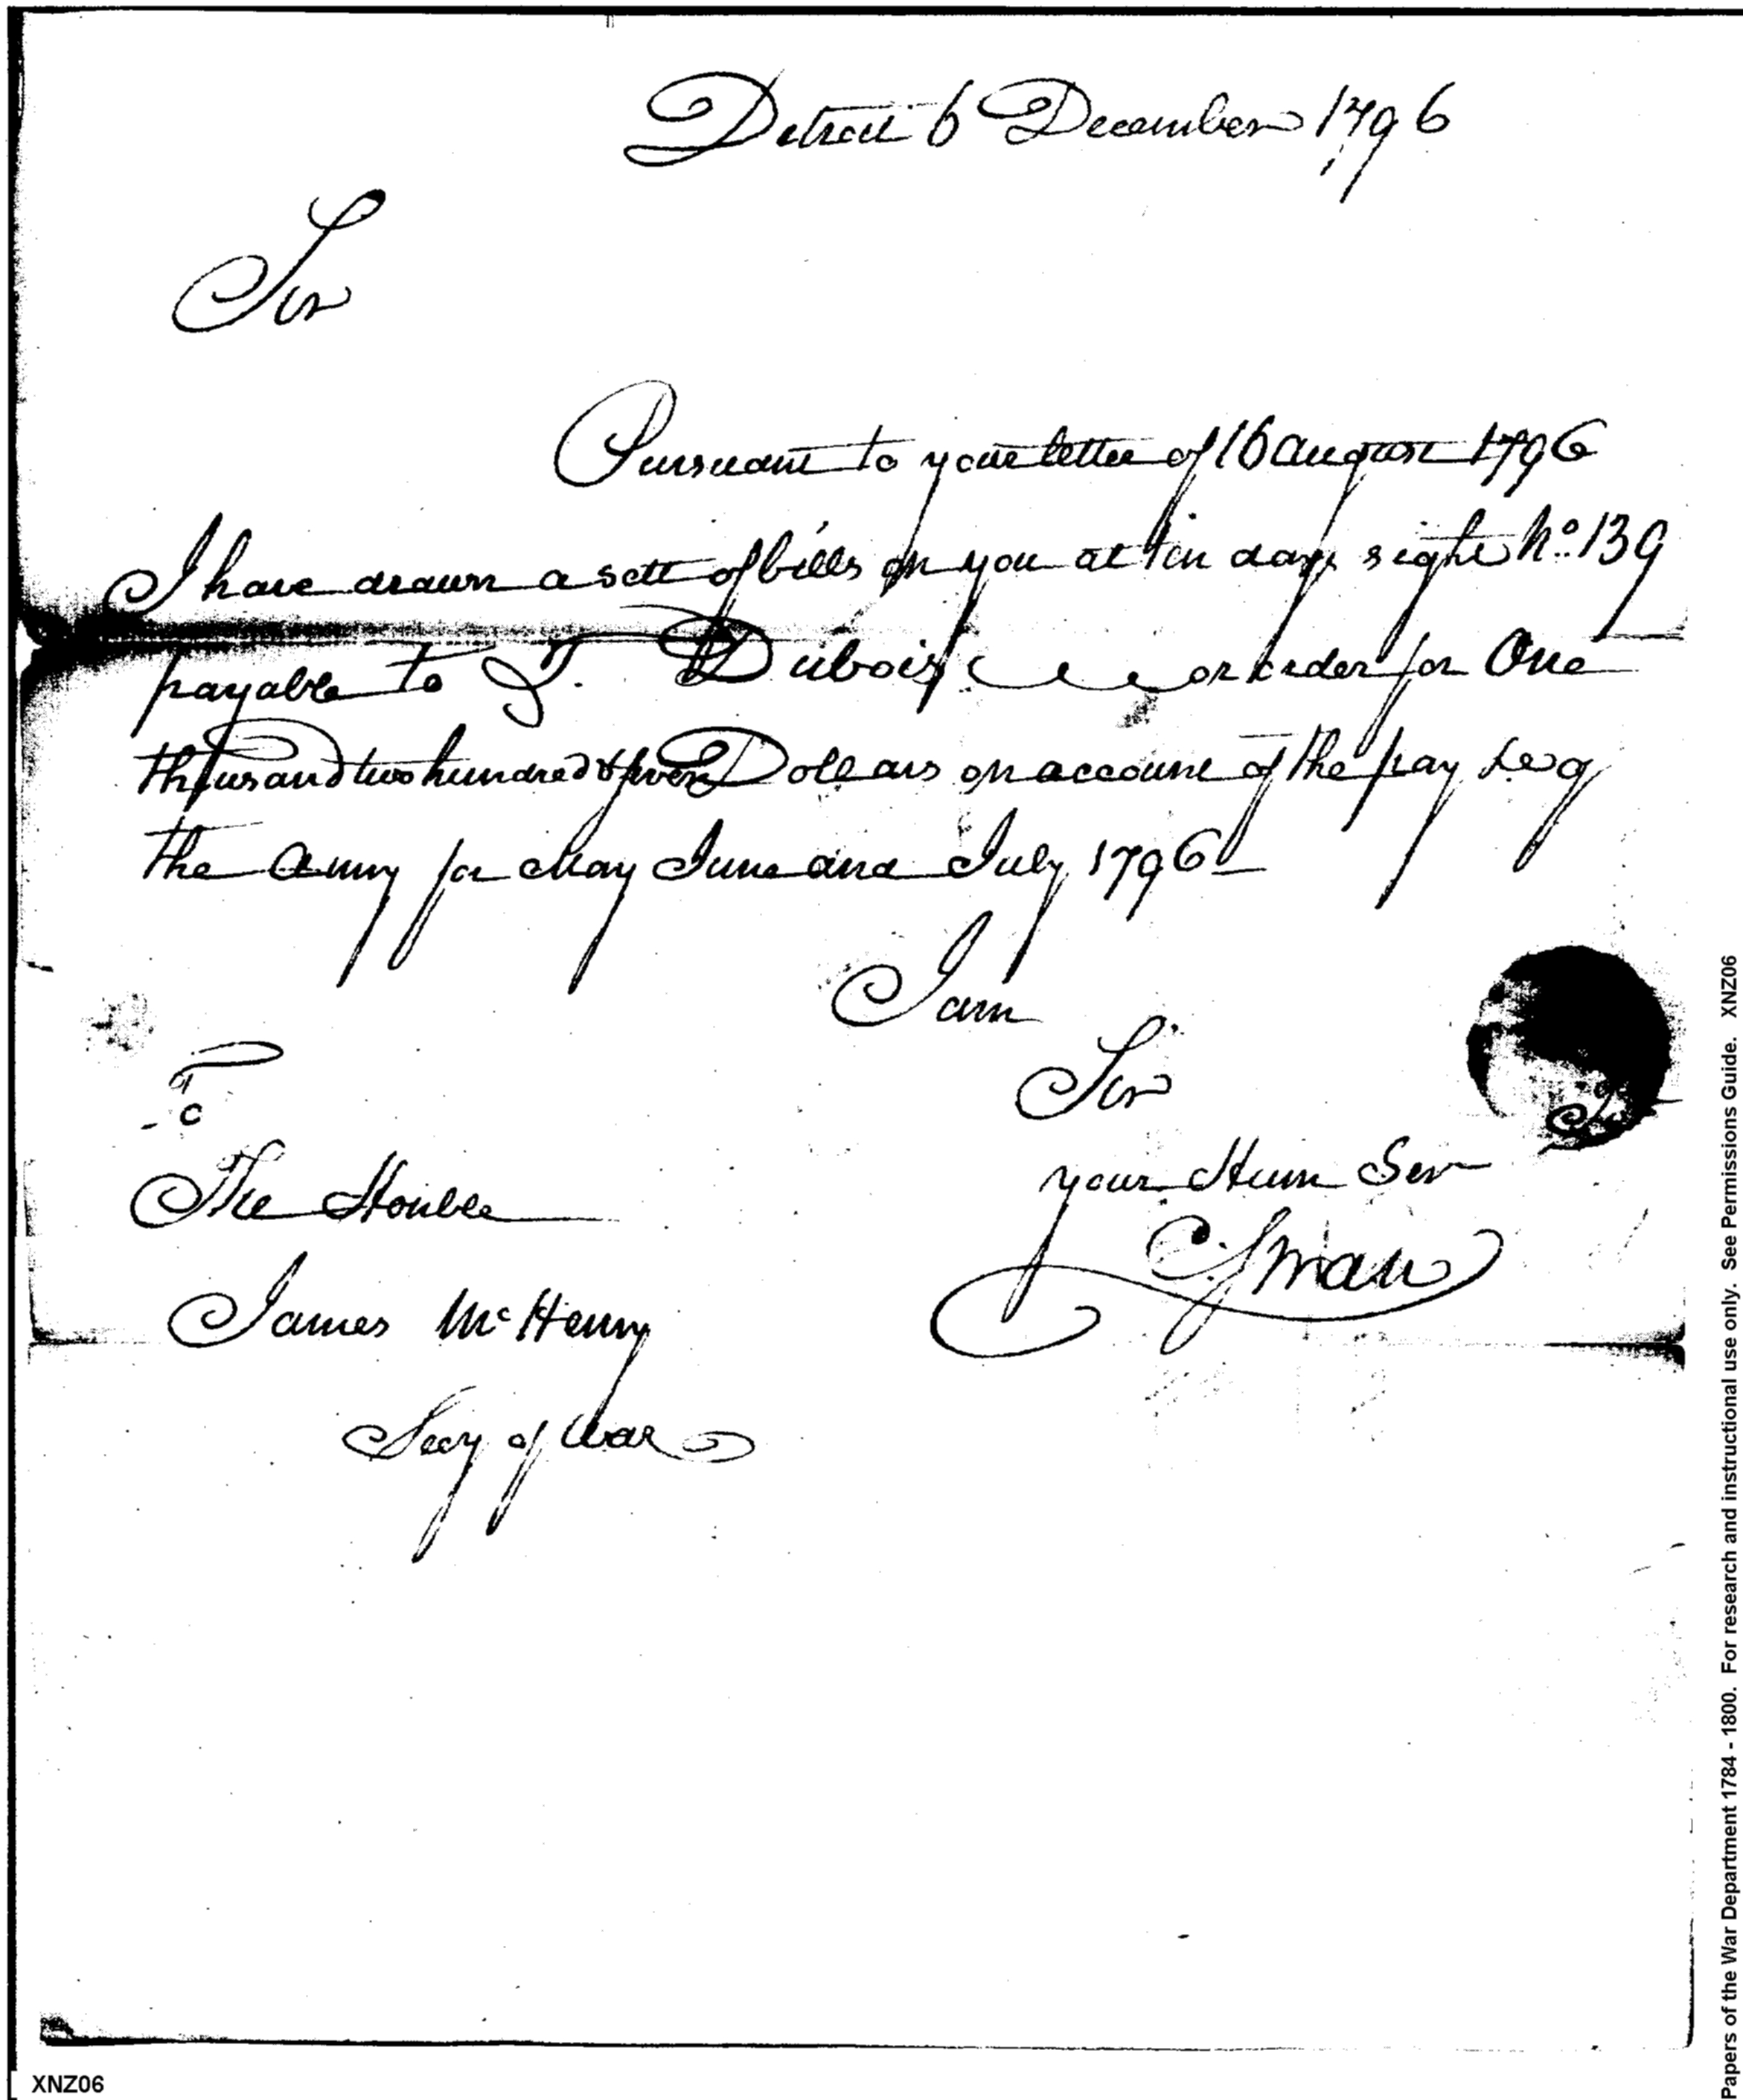 Detroit 6 December 1796
Sir
Pursuant to your letter of 16 august 1796
I have drawn a sett of bills on you at ten days sight No. 139
payable to T. Dubois or order for One
thousand two hundred & Dollars on account of the pay &c of
the Army for May June and July 1796
I am
Sir
your Hum Ser
C Swan
To
The Honble
James McHenry
Secy of War
Papers of the War Department 1784 - 1800. For research and instructional use only. See Permissions Guide. XNZ06
XNZ06